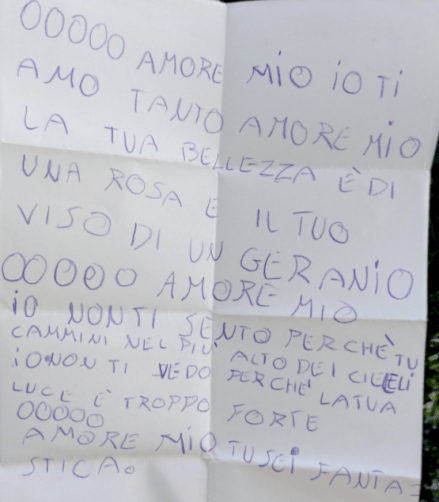 OOOOO AMORE MIO IO TI
AMO TANTO AMORE MIO
LA TUA BELLEZZA È DI
UNA ROSA E IL TUO
VISO DI UN GERANIO
OOOOO AMORE MIO
IO NON TI SENTO PERCHÈ TU
CAMMINI NEL PIÙ ALTO DEI CIEELI
IO NON TI VEDO PERCHÈ LA TUA
LUCE È TROPPO FORTE
OOOOO
AMORE MIO TU SEI FANTA=
STICA.